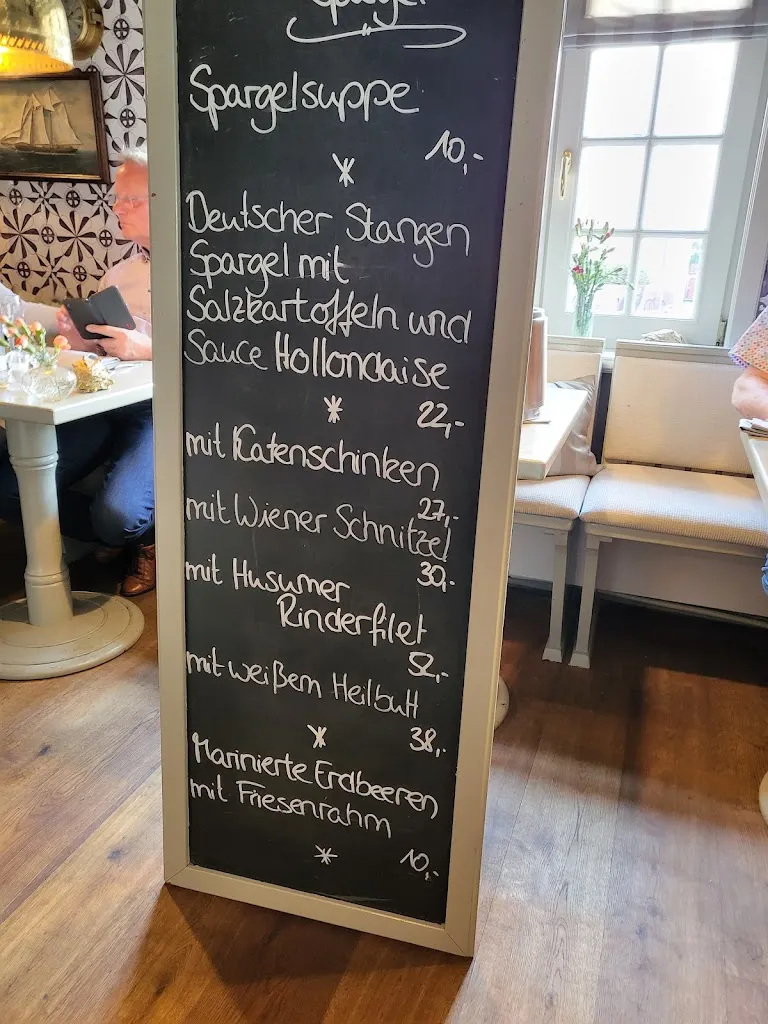 Spargel
Spargelsuppe
10,-
Deutscher Stangen
Spargel mit
Salzkartoffeln und
Sauce Hollondaise
22,-
mit Katenschinken
27,-
mit Wiener Schnitzel
30,-
mit Husumer
Rinderfilet
52,-
mit weißem Heilbutt
38,-
Marinierte Erdbeeren
mit Friesenrahm
10,-